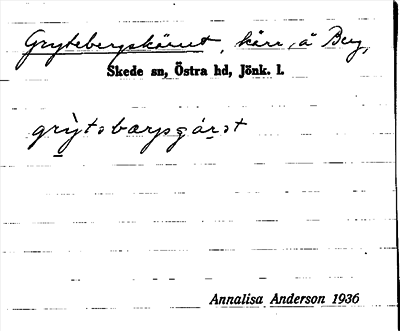 Grytebergskärret, kärr, å Berg,
Skede sn, Östra hd, Jönk. l.
grỳtəbærysgárət
Annalisa Anderson 1936